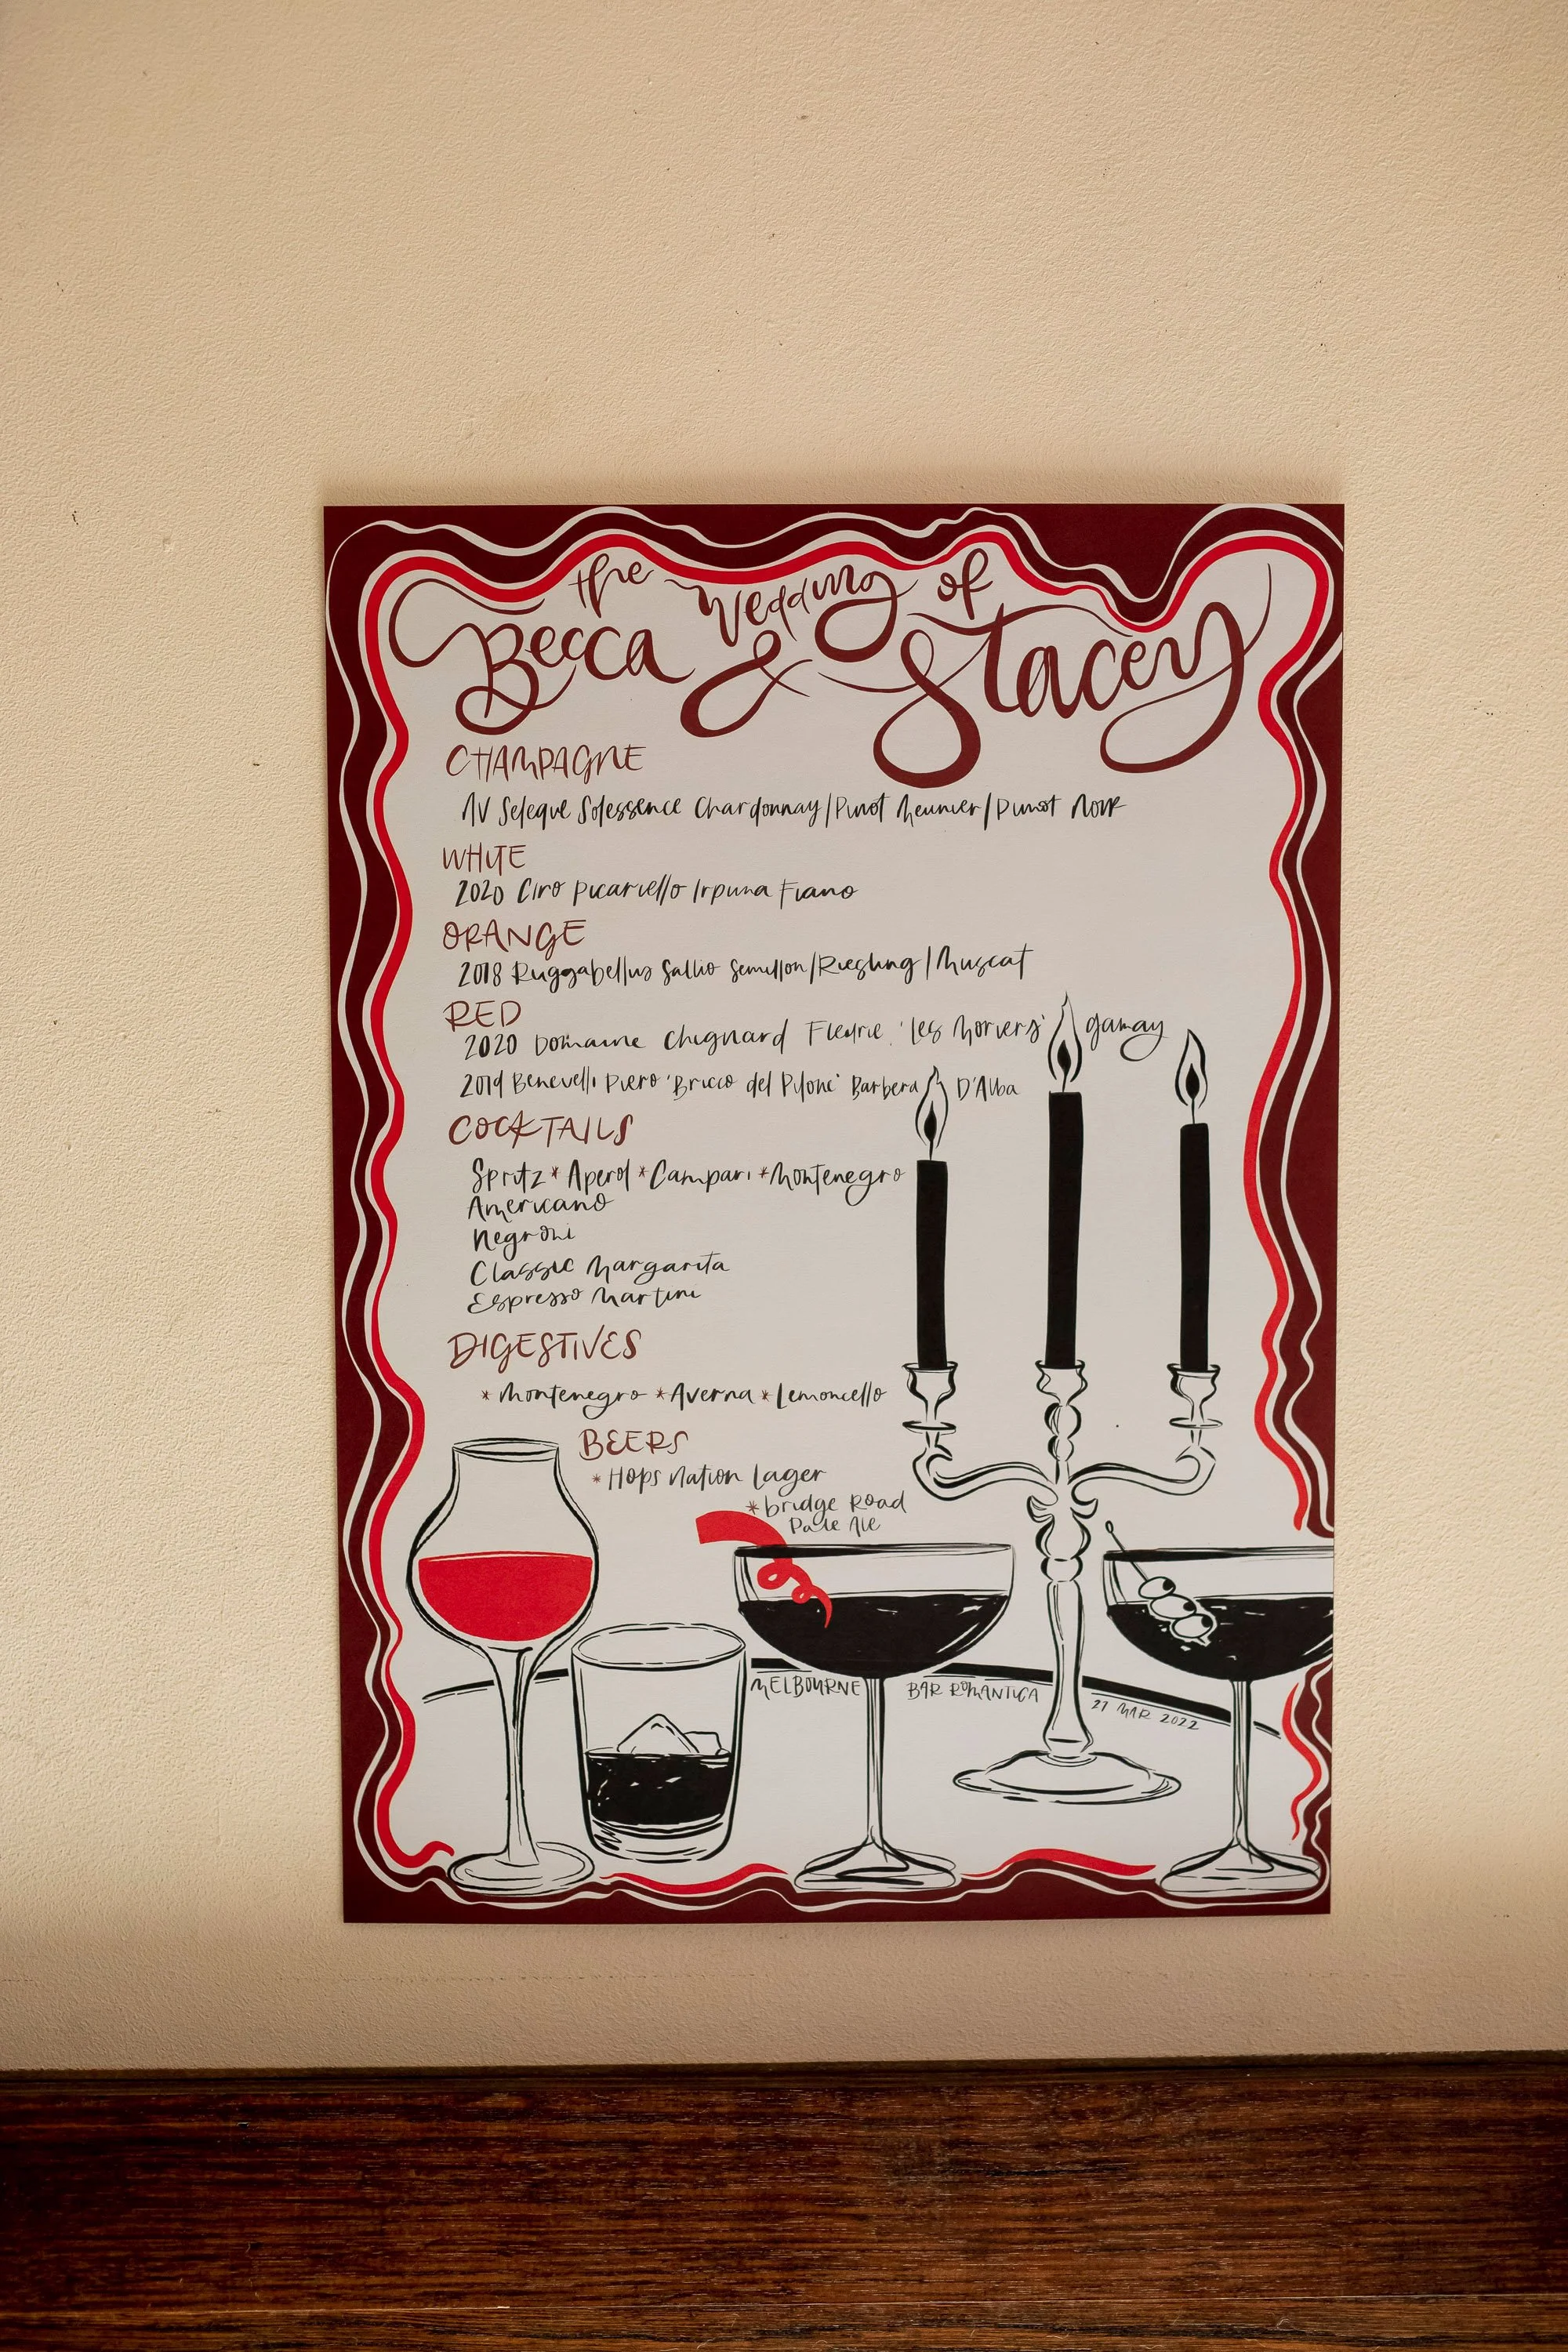 the Wedding of
Becca & Stacey
CHAMPAGNE
NV Seleque Solessence Chardonnay/Pinot Meunier/Pinot Noir
WHITE
2020 Ciro Picariello Irpinia Fiano
ORANGE
2018 Ruggabellus Sallio Semillon/Riesling/Muscat
RED
2020 Domaine Chignard Fleurie 'Les Moriers' gamay
2019 Benevelli Piero 'Bricco del Pilone' Barbera D'Alba
COCKTAILS
Spritz * Aperol * Campari * Montenegro
Americano
Negroni
Classic Margarita
Espresso Martini
DIGESTIVES
* Montenegro * Averna * Lemoncello
BEERS
* Hops Nation Lager
* bridge Road
Pale Ale
MELBOURNE BAR ROMANTICA 27 MAR 2022